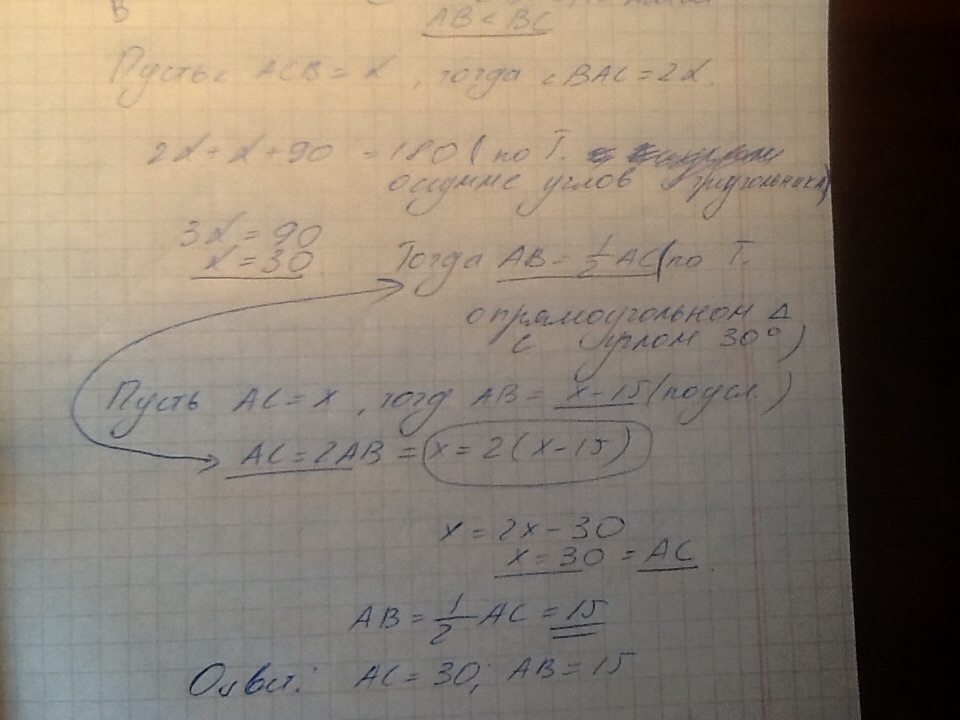 B
AB < BC
Пусть ∠ ACB = α, тогда ∠BAC = 2α.
2α + α + 90 = 180 (по Т.
о сумме углов треугольника)
3α = 90
α = 30
Тогда AB = 1/2 AC (по Т.
о прямоугольном Δ
с углом 30°)
Пусть AC = x, тогд AB = x-15 (по усл.)
AC = 2AB = x = 2(x-15)
x = 2x - 30
x = 30 = AC
AB = 1/2 AC = 15
Ответ: AC = 30; AB = 15